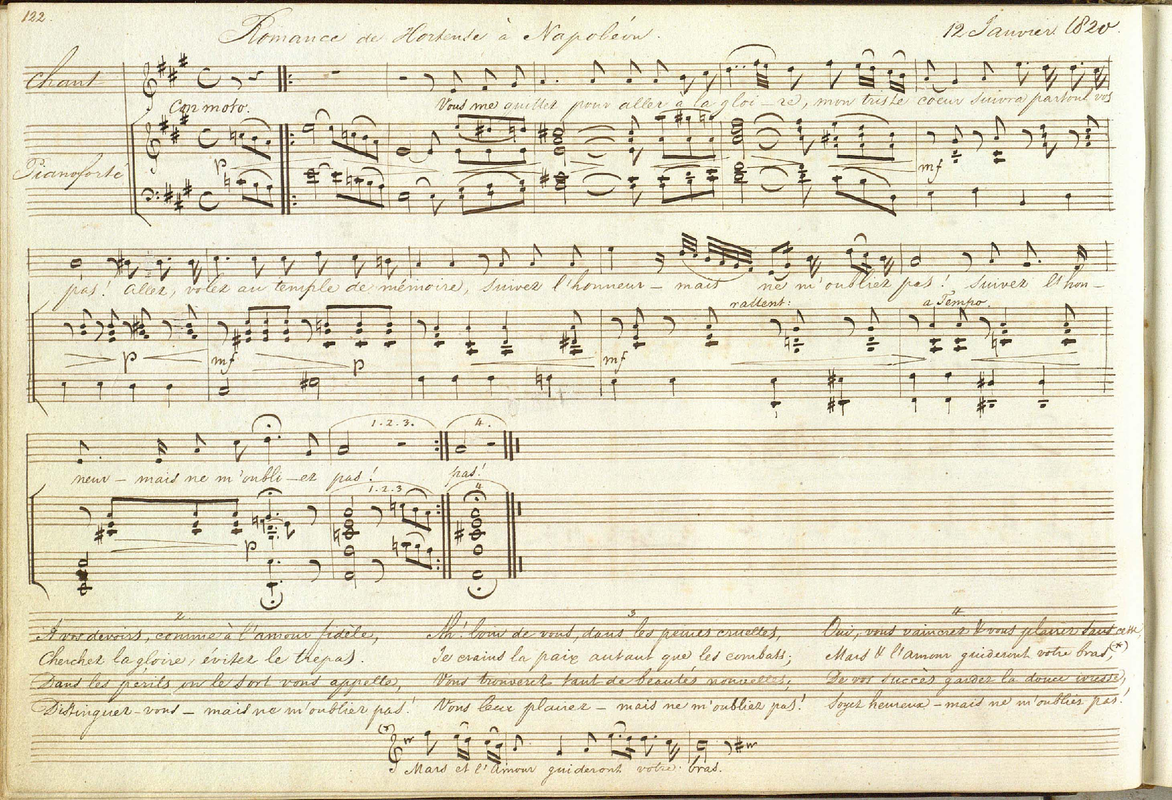 122.
Romance de Hortense à Napoléon.
12 Janvier 1820.
Chant
Con moto.
Vous me quittez pour aller à la gloi - re, mon triste coeur suivra partout vos
Pianoforte
p
mf
pas! Allez, volez au temple de mémoire, suivez l'honneur - mais ne m'oubliez pas! suivez l'hon-
rallent: a Tempo.
p mf p mf
neur - mais ne m'oubli - ez pas! pas!
1.2.3. 4.
1.2.3 4
p
2
A vos devoirs, comme à l'amour fidèle,
Cherchez la gloire, évitez le trepas.
Dans les périls où le sort vous appelle,
Distinguez-vous - mais ne m'oubliez pas!
3
Ah! loin de vous, dans les peines cruelles,
Je crains la paix autant que les combats;
Vous trouverez tant de beautés nouvelles;
Vous leur plairez - mais ne m'oubliez pas!
4
Oui, vous vaincrez & vous plairez sans cesse,
Mars & l'amour guideront votre bras, (*)
De vos succès gardez la douce ivresse,
Soyez heureux - mais ne m'oubliez pas!
(*)
Mars et l'Amour guideront votre bras.